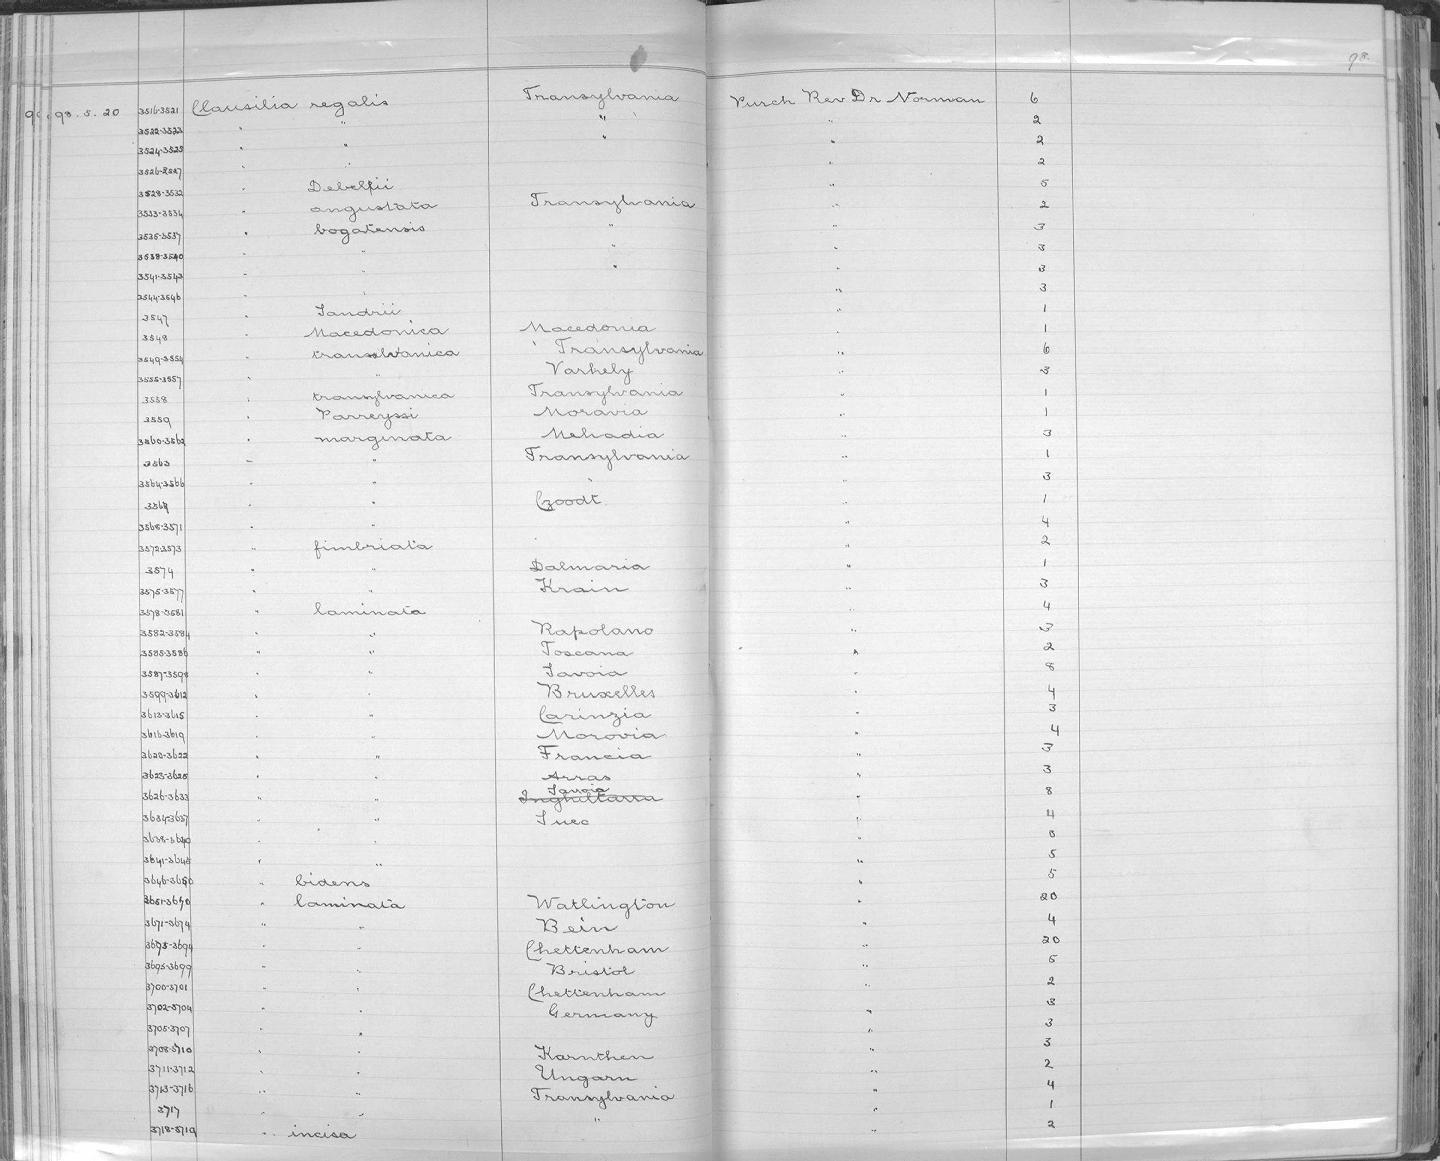 98.
98.5.20 3516-3521 Clausilia regalis Transylvania Purch Rev Dr Norman 6
3522-3523 " " " " 2
3524-3525 " " " " 2
3526-3527 " " " 2
3528-3532 " " 5
3533-3534 " angustata Transylvania " 2
3535-3537 " bogatensis " " 3
3538-3540 " " " " 3
3541-3543 " " " " 3
3544-3546 " " " 3
3547 " " 1
3548 Macedonica Macedonia " 1
3549-3554 " Transylvania " 6
3555-3557 " " Varhely " 3
3558 " transylvanica Transylvania " 1
3559 " Parreyssi Moravia " 1
3560-3562 " marginata Mehadia " 3
3563 " " Transylvania " 1
3564-3566 " " " 3
" Czoodt " 1
3568-3571 " " " 4
3572-3573 " fimbriata " 2
3574 " " Dalmaria " 1
3575-3577 " " Krain " 3
3578-3581 " laminata " 4
3582-3584 " " Rapolano " 3
3585-3586 " " Toscana " 2
" " Savoia " 8
" " Bruxelles " 4
3613-3615 " " Carinzia " 3
3616-3619 " " Morovia " 4
3620-3622 " " Francia " 3
3623-3625 " " Arras " 3
Savoia
3626-3633 " " Inghilterra " 8
3634-3637 " " " 4
3638-3640 " "
3641-3645 " " " 5
3646-3650 " bidens " 5
3651-3670 " laminata Watlington " 20
3671-3674 " " Bein " 4
Cheltenham " 20
3695-3699 " " Bristol " 5
3700-3701 " " Cheltenham " 2
3702-3704 " " Germany " 3
3705-3707 " " " 3
3708-3710 " " Karnthen " 3
3711-3712 " " Ungarn " 2
3713-3716 " " Transylvania " 4
3717 " " " " 1
3718-3719 " incisa " 2